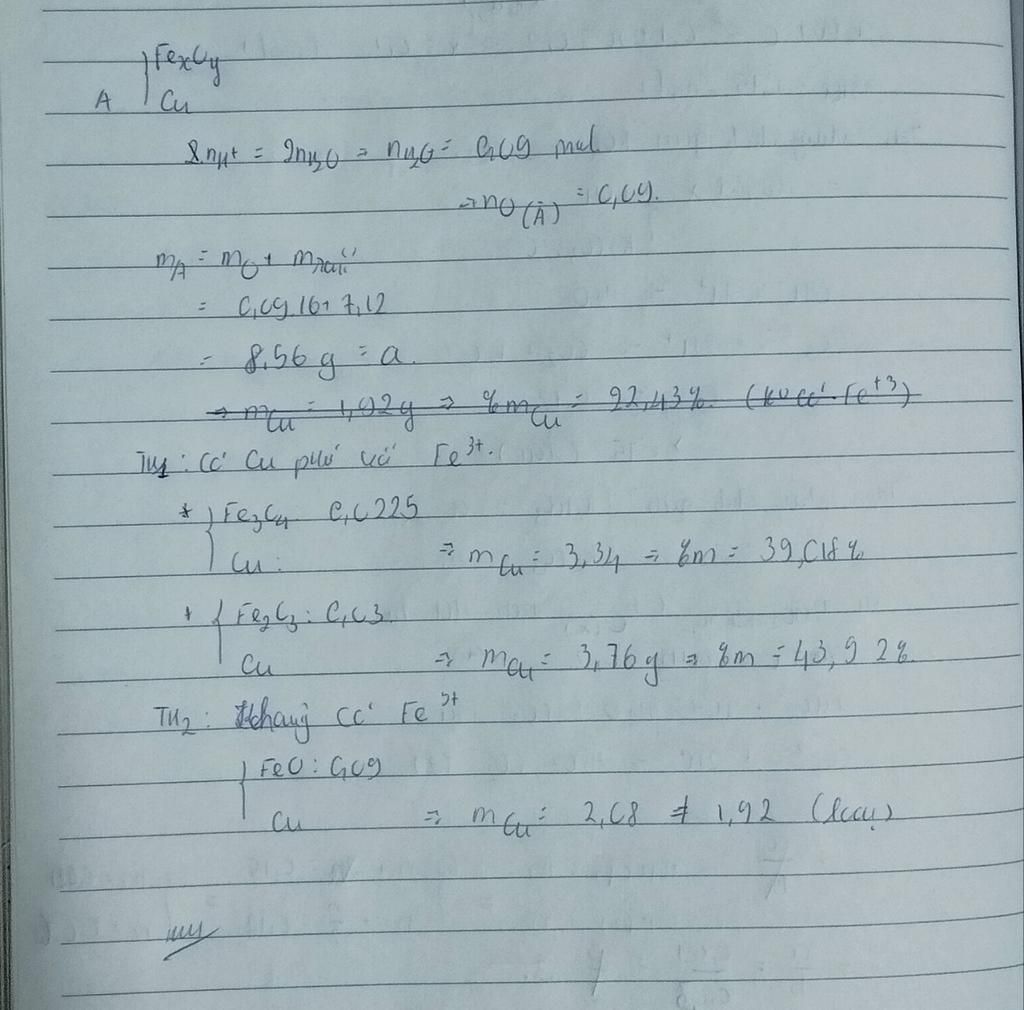 A { FexOy
Cu
2.nH+ = 2nH2O => nH2O = 0,09 mol
=> nO(A) = 0,09.
mA = mO + m
= 0,09.16 + 7,12
= 8,56 g = a.
=> mCu = 1,92g => %mCu = 22,43%. (ko có Fe+3)
TH1: Có Cu phứ với Fe3+.
* { Fe3O4 0,0225
Cu: => mCu = 3,34 => %m = 39,018%
+ { Fe2O3: 0,03.
Cu => mCu = 3,76g => %m = 43,92%.
TH2: Không có Fe3+
{ FeO: 0,09
Cu => mCu = 2,08 ≠ 1,92 (loại)